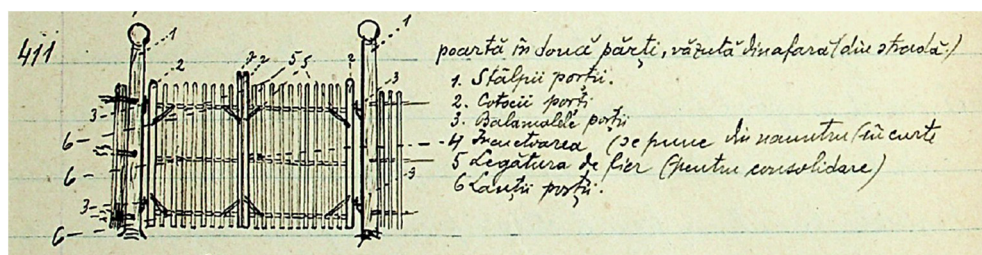 411
poartă în două părți, văzută dinafară (din stradă.)
1. Stâlpii porții.
2. Cotocii porți
3. Balamalele porții
4 Încuetoarea (se pune din năuntru/în curte
5 Legătura de fier (pentru consolidare)
6 Lanții porții.
1
1
2
2
2
5
5
3
3
6
6
3
3
6